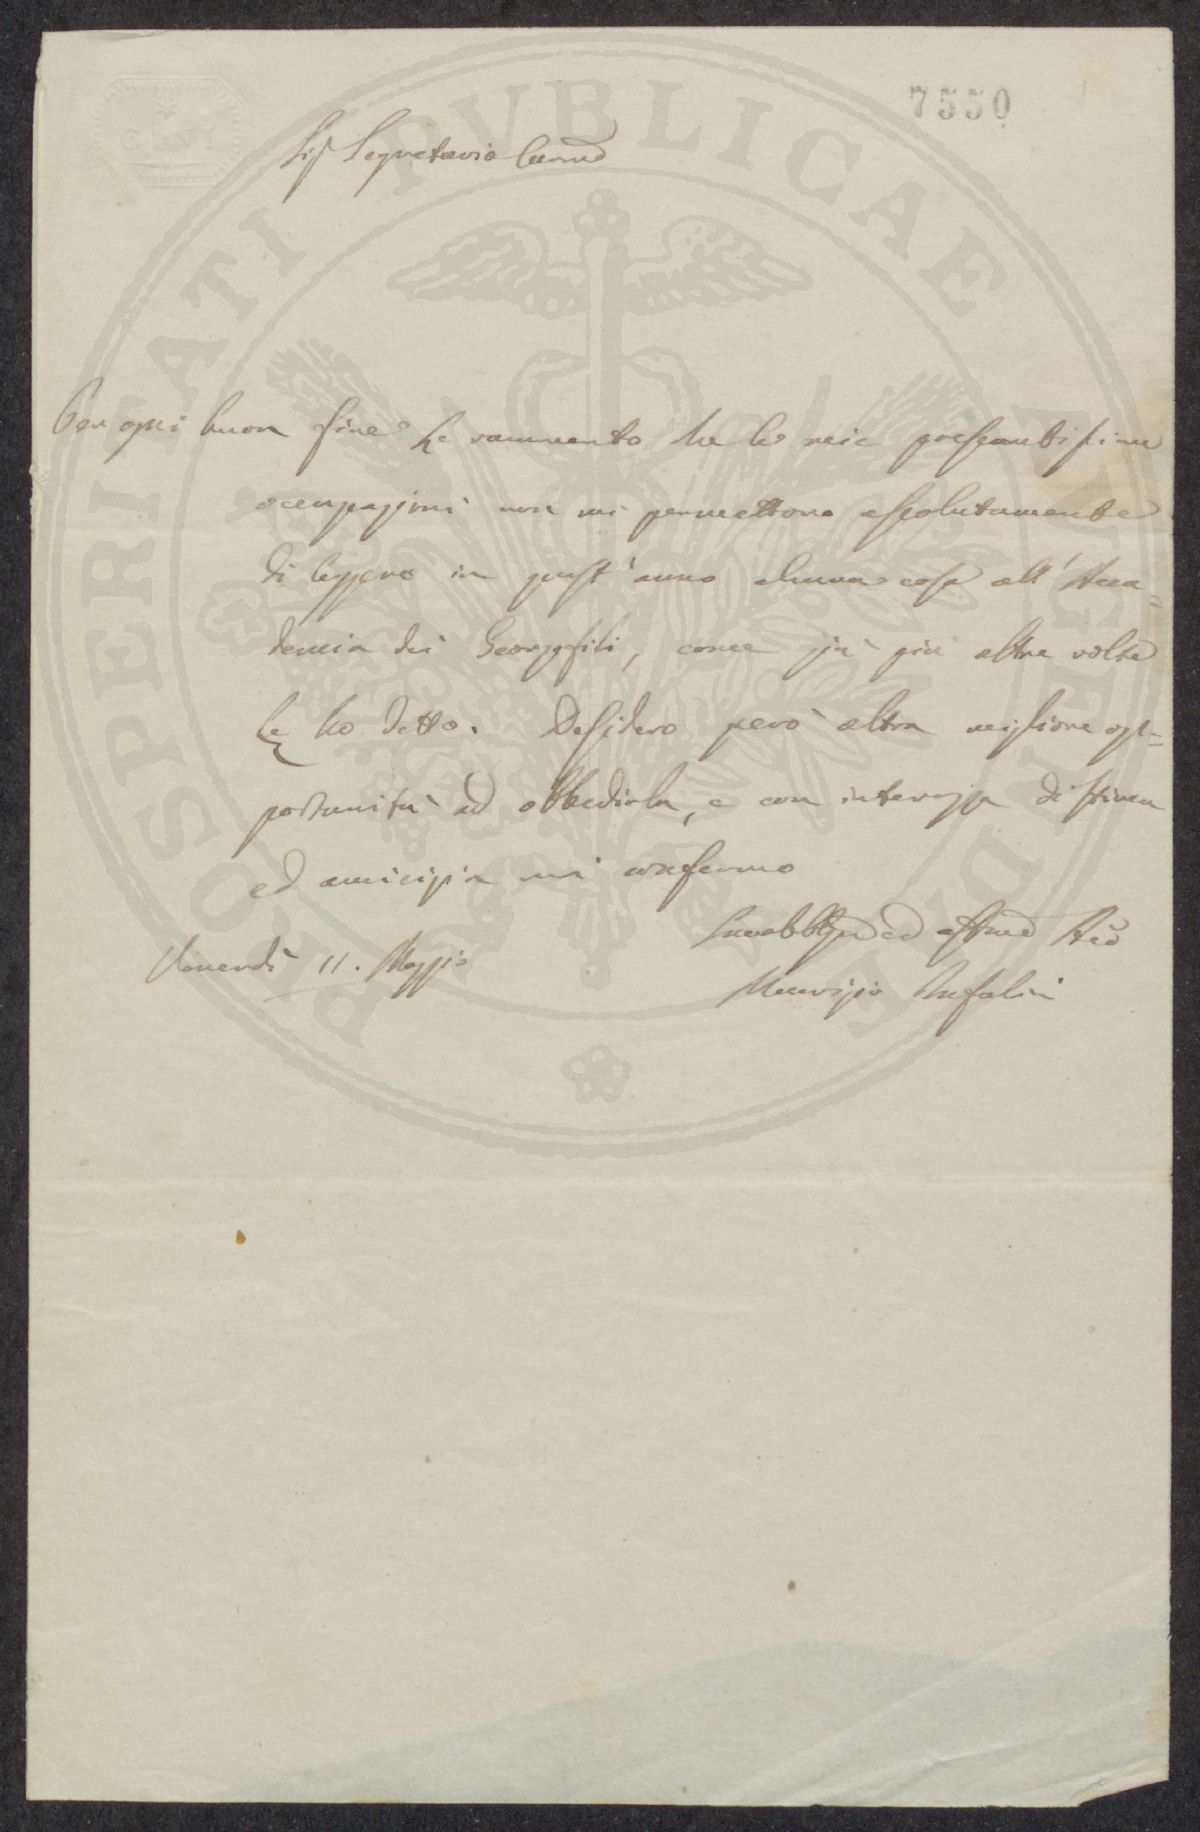 7550
Sig Segretario
Per ogni buon fine Le rammento che le mie pressantissime
occupazioni non mi permettono assolutamente
di leggere in quest'anno alcuna cosa all'Acca=
demia dei Georgofili, come già più altre volte
Le ho detto. Desidero però altra migliore op=
portunità ad obbedirla, e con interezza di stima
ed amicizia mi confermo
ed
Venerdì 11. Maggio
Maurizio Bufalini
PROSPERITATI PUBLICAE AUGENDAE